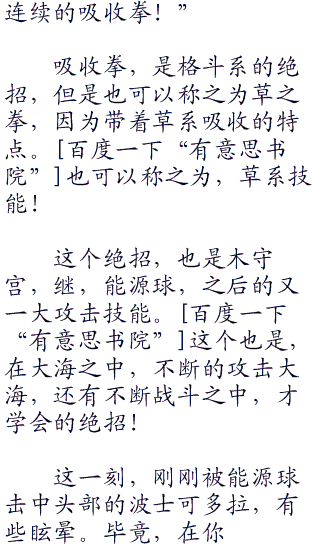 连续的吸收拳！”
吸收拳，是格斗系的绝
招，但是也可以称之为草之
拳，因为带着草系吸收的特
点。[百度一下“有意思书
院”]也可以称之为，草系技
能！
这个绝招，也是木守
宫，继，能源球，之后的又
一大攻击技能。[百度一下
“有意思书院”]这个也是，
在大海之中，不断的攻击大
海，还有不断战斗之中，才
学会的绝招！
这一刻，刚刚被能源球
击中头部的波士可多拉，有
些眩晕。毕竟，在你